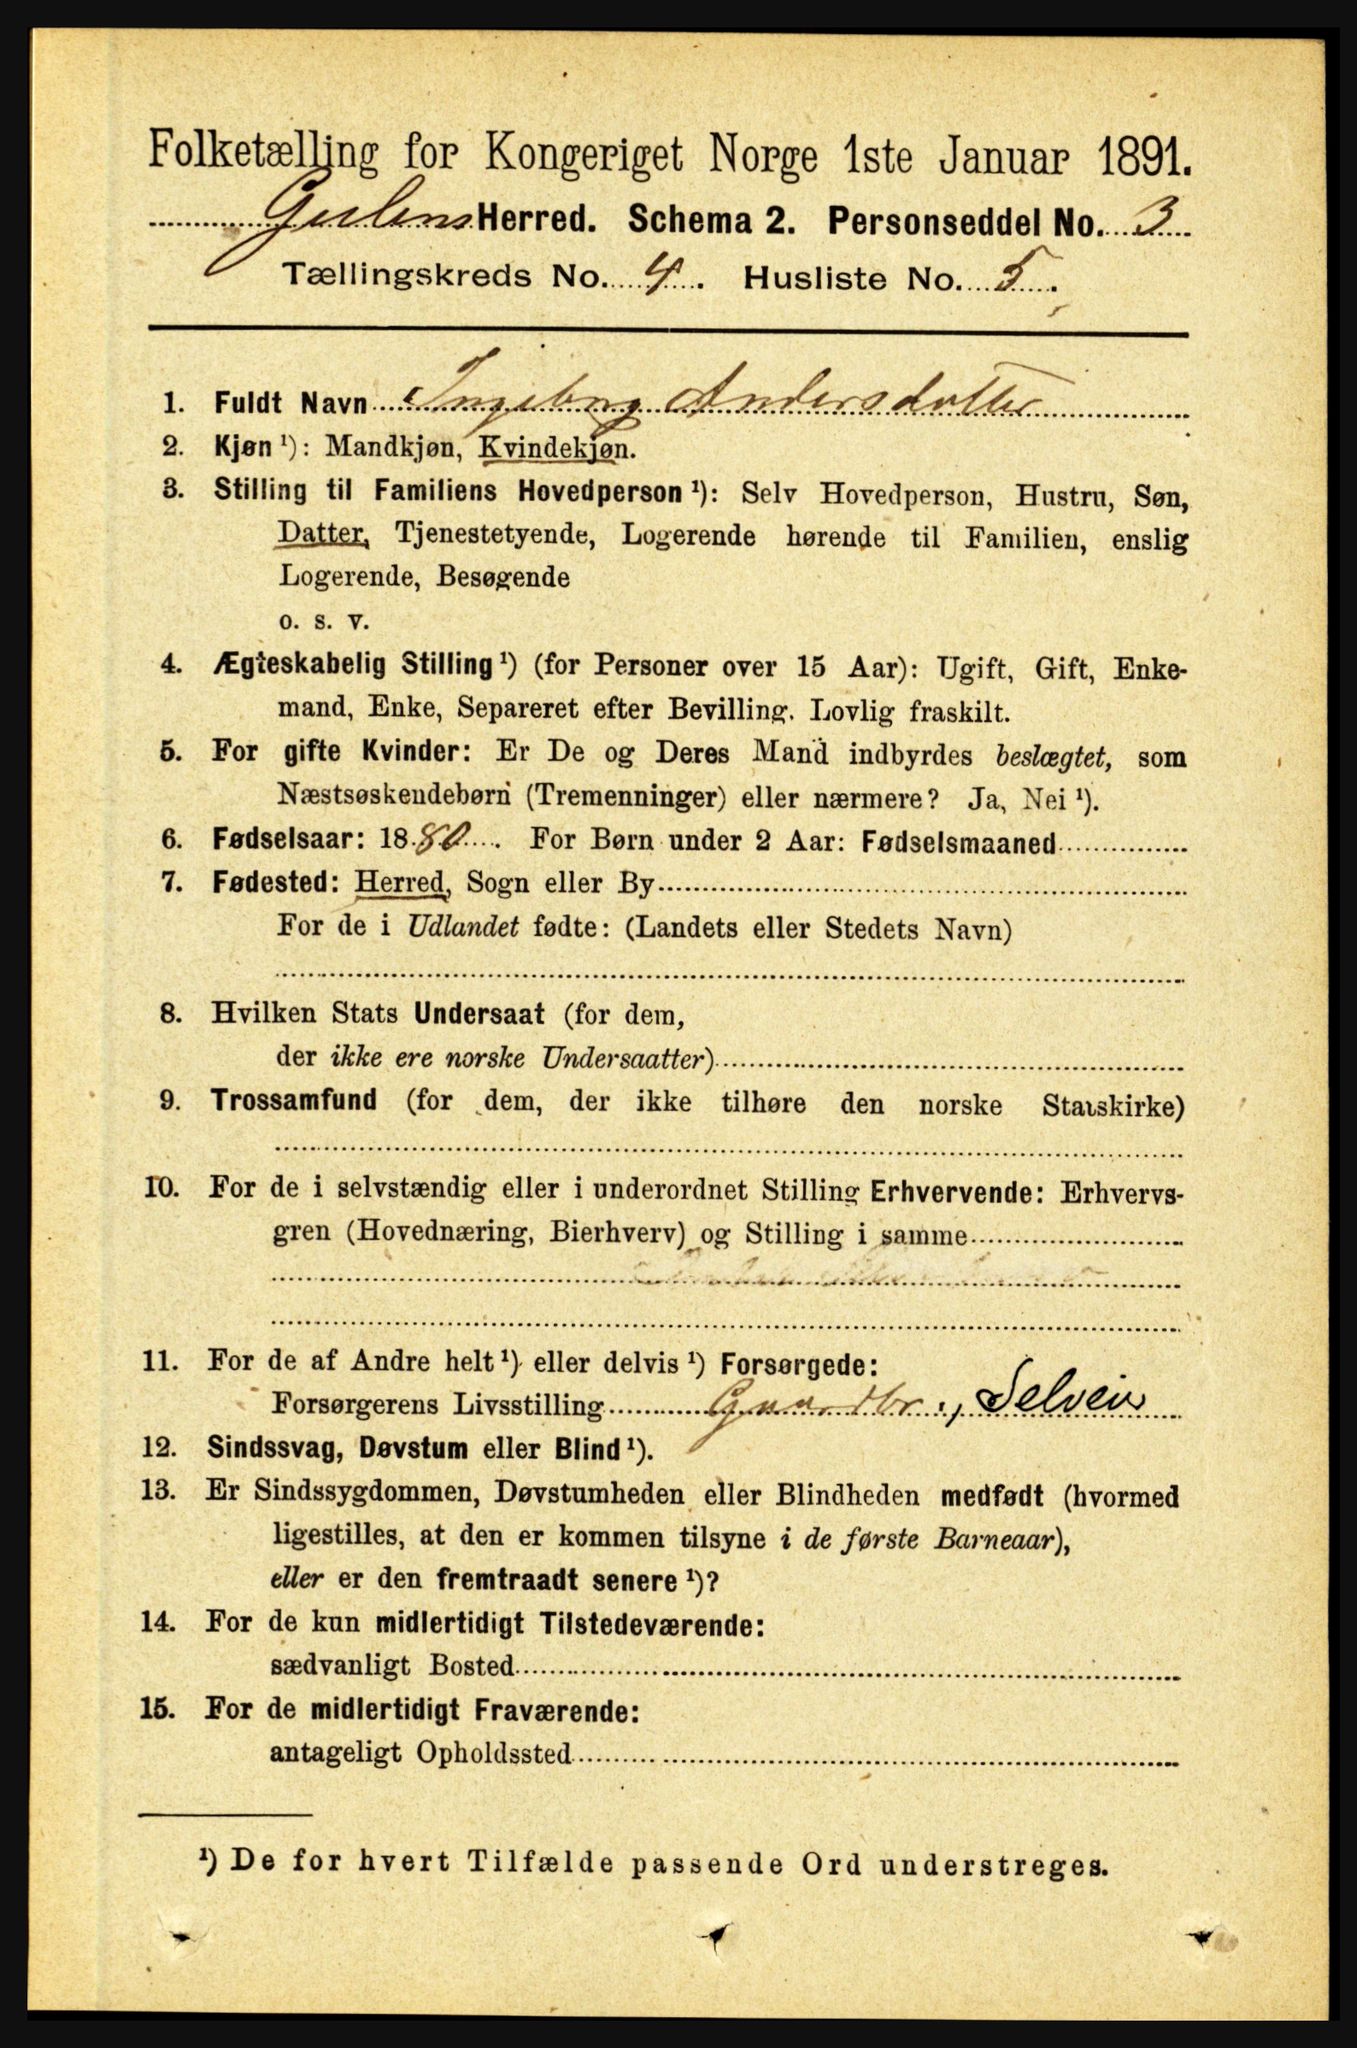 Folketælling for Kongeriget Norge 1ste Januar 1891.
Gulens Herred. Schema 2. Personseddel No. 3
Tællingskreds No. 4. Husliste No. 5.
1. Fuldt Navn Ingeborg Andersdatter
2. Kjøn ¹): Mandkjøn, Kvindekjøn.
3. Stilling til Familiens Hovedperson ¹): Selv Hovedperson, Hustru, Søn,
Datter, Tjenestetyende, Logerende hørende til Familien, enslig
Logerende, Besøgende
o. s. v.
4. Ægteskabelig Stilling ¹) (for Personer over 15 Aar): Ugift, Gift, Enke-
mand, Enke, Separeret efter Bevilling. Lovlig fraskilt.
5. For gifte Kvinder: Er De og Deres Mand indbyrdes beslægtet, som
Næstsøskendebørn (Tremenninger) eller nærmere? Ja, Nei ¹).
6. Fødselsaar: 1880. For Børn under 2 Aar: Fødselsmaaned
7. Fødested: Herred, Sogn eller By
For de i Udlandet fødte: (Landets eller Stedets Navn)
8. Hvilken Stats Undersaat (for dem,
der ikke ere norske Undersaatter)
9. Trossamfund (for dem, der ikke tilhøre den norske Statskirke)
10. For de i selvstændig eller i underordnet Stilling Erhvervende: Erhvervs-
gren (Hovednæring, Bierhverv) og Stilling i samme
11. For de af Andre helt ¹) eller delvis ¹) Forsørgede:
Forsørgerens Livsstilling Gaardbr., Selveier
12. Sindssvag, Døvstum eller Blind ¹).
13. Er Sindssygdommen, Døvstumheden eller Blindheden medfødt (hvormed
ligestilles, at den er kommen tilsyne i de første Barneaar),
eller er den fremtraadt senere ¹)?
14. For de kun midlertidigt Tilstedeværende:
sædvanligt Bosted
15. For de midlertidigt Fraværende:
antageligt Opholdssted
¹) De for hvert Tilfælde passende Ord understreges.